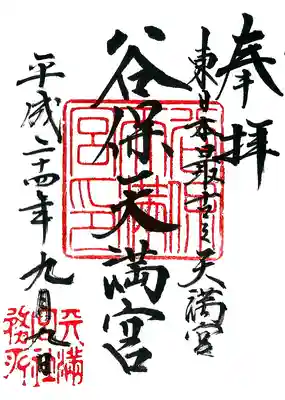 奉拝
東日本最古之天満宮
谷保天満宮
平成二十四年九月九日
天満宮社務所